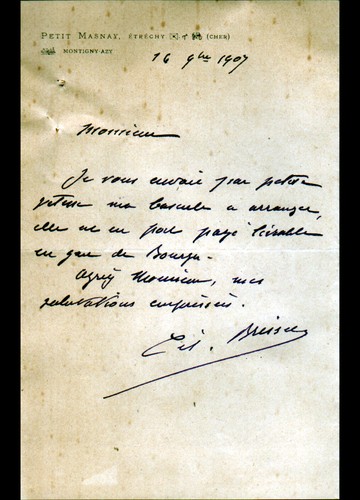 PETIT MASNAY, ÉTRÉCHY (CHER)
MONTIGNY-AZY
16 9bre 1907
Monsieur
Je vous envoie par petite
vitesse ma bascule a arranger,
elle va en port payé livrable
en gare de Bourges.
Agréez Monsieur, mes
salutations empressées.